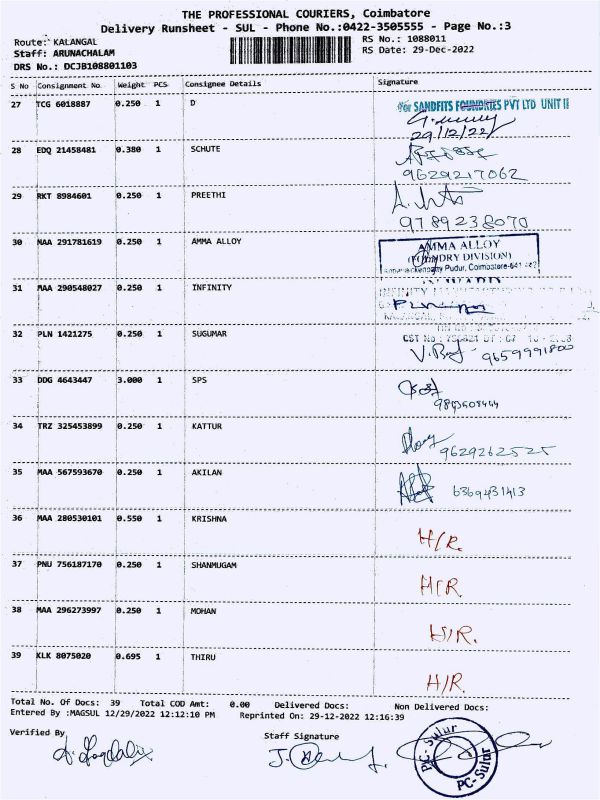 THE PROFESSIONAL COURIERS, Coimbatore
Delivery Runsheet - SUL - Phone No.:0422-3505555 - Page No.:3
Route: KALANGAL
RS No.: 1088011
Staff: ARUNACHALAM
RS Date: 29-Dec-2022
DRS No.: DCJB108801103
S No Consignment No. Weight PCS Consignee Details Signature
27 TCG 6018887 0.250 1 D For SANDFITS FOUNDRIES PVT LTD UNIT II
29/12/22
28 EDQ 21458481 0.380 1 SCHUTE
9629217062
29 RKT 8984601 0.250 1 PREETHI
9789238070
30 MAA 291781619 0.250 1 AMMA ALLOY
AMMA ALLOY
(FOUNDRY DIVISION)
Pudur, Coimbatore-641
31 MAA 290548027 0.250 1 INFINITY
INFINITY
32 PLN 1421275 0.250 1 SUGUMAR
CST No
9659991800
33 DDG 4643447 3.000 1 SPS
34 TRZ 325453899 0.250 1 KATTUR
9629262525
35 MAA 567593670 0.250 1 AKILAN
6369431413
36 MAA 280530101 0.550 1 KRISHNA
H/R.
37 PNU 756187170 0.250 1 SHANMUGAM
H/R.
38 MAA 296273997 0.250 1 MOHAN
H/R.
39 KLK 8075020 0.695 1 THIRU
H/R.
Total No. Of Docs: 39 Total COD Amt: 0.00 Delivered Docs: Non Delivered Docs:
Entered By :MAGSUL 12/29/2022 12:12:10 PM Reprinted On: 29-12-2022 12:16:39
Verified By
Staff Signature
PC-Sulur
PC-Sulur